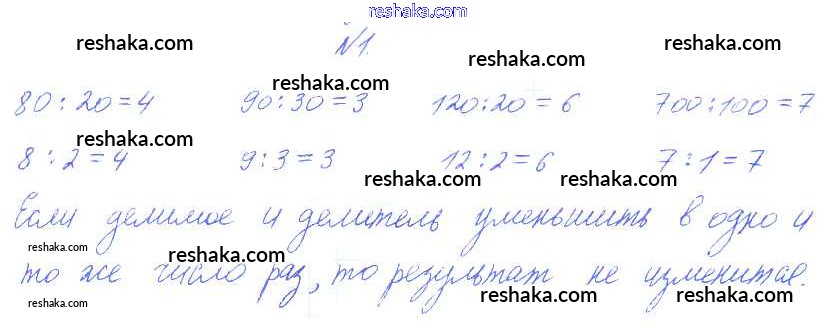 reshaka.com
reshaka.com №1. reshaka.com reshaka.com
reshaka.com
80:20=4 90:30=3 120:20=6 700:100=7
reshaka.com
8:2=4 9:3=3 12:2=6 7:1=7
reshaka.com reshaka.com
Если делимое и делитель уменьшить в одно и
reshaka.com reshaka.com
то же число раз, то результат не изменится.
reshaka.com reshaka.com reshaka.com